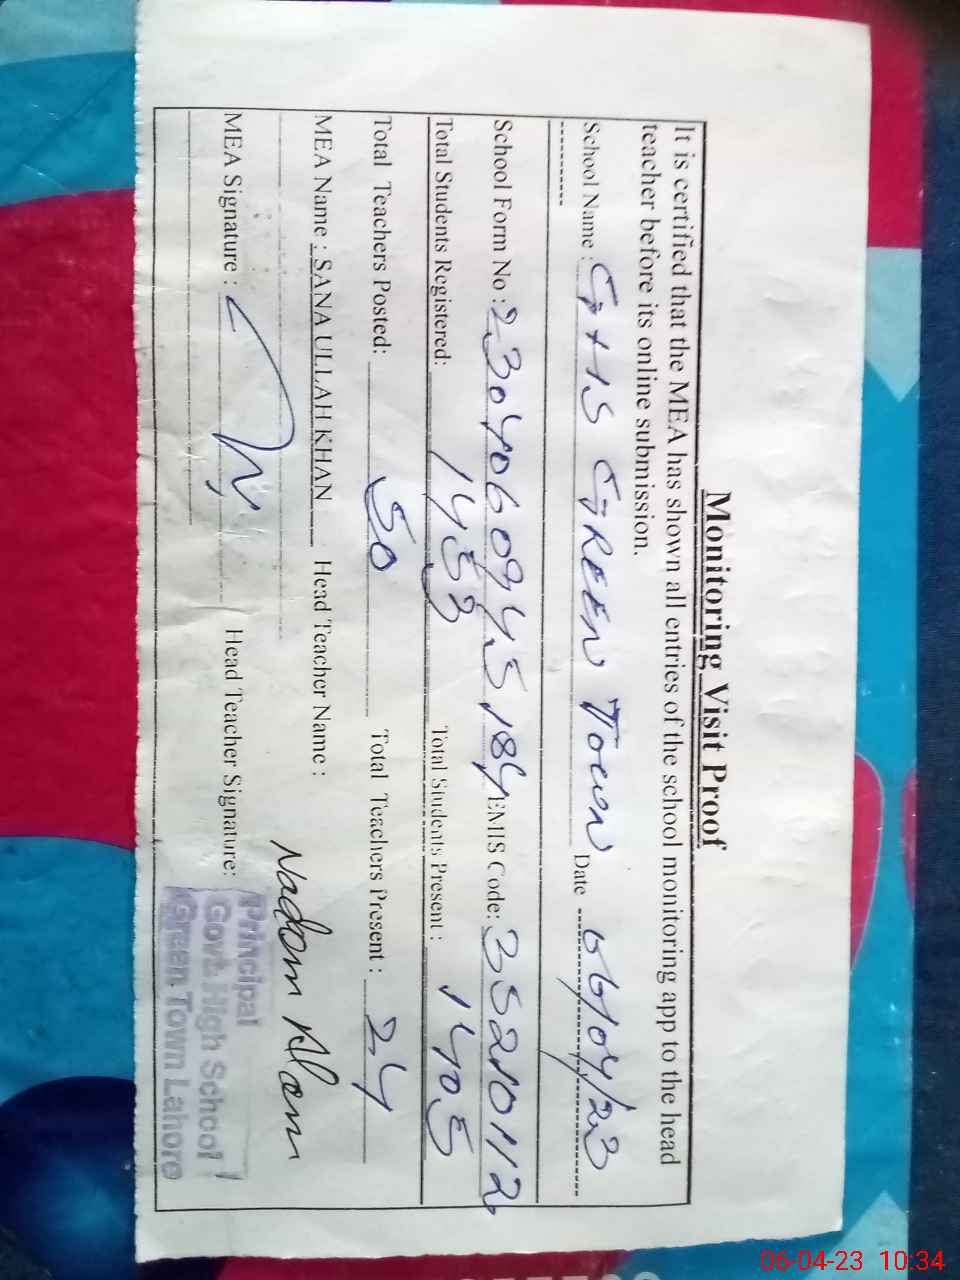 Monitoring Visit Proof
It is certified that the MEA has shown all entries of the school monitoring app to the head
teacher before its online submission.
School Name : GHS GREEN TOWN Date 06/04/23
School Form No : 2304060945184 EMIS Code: 35210112
Total Students Registered: 1453 Total Students Present : 1405
Total Teachers Posted: 50 Total Teachers Present : 24
MEA Name : SANA ULLAH KHAN Head Teacher Name : Nadom Alam
MEA Signature : Head Teacher Signature:
Principal
Govt. High School
Green Town Lahore
06-04-23 10:34